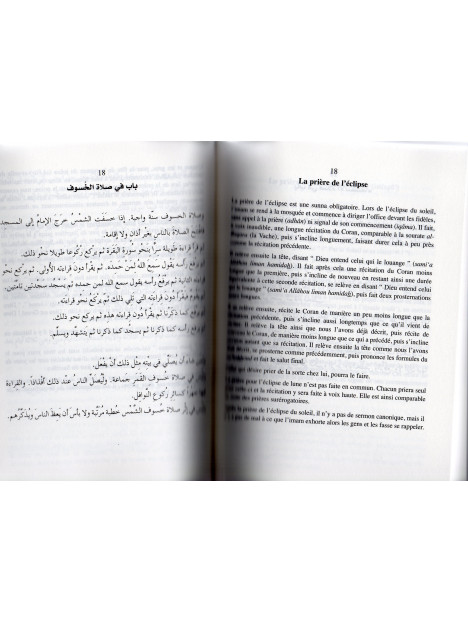 18
باب في صلاة الخُسوف
وصلاة الخسوف سنة واجبة. إذا خسفت الشَّمْسُ خرج الإمامُ إلى المسجد
فافتتح الصلاة بالناس بغَيْر أذان ولا إقامة.
قرأ قراءة طويلة سرًّا بنحو سورة البقرة ثم يركع رُكوعًا طويلا نحو ذلك.
يرفع رأسه يقول سمع الله لمن حمده. ثم يقرأ دون قراءته الأولى. ثم يركع نحو
قراءته الثانية ثم يرفع رأسه يقول سمع الله لمن حمده ثم يسجد سجدتين تامتين.
يقوم فيقرأ دون قراءته التي تلي ذلك. ثم يركع نحو قراءته
يرفع كما ذكرنا ثم يقرأ دون قراءته هذه ثم يركع نحو ذلك.
يرفع رأسه كما ذكرنا ثم يسجد كما ذكرنا ثم يتشهد ويسلّم.
شاء أن يُصلّي في بيته مثل ذلك أنْ يفْعَل.
في صلاة خسوف القَمَر جماعة. وليُصلّ الناس عند ذلك أفْذاذًا. والقراءة
جهرًا كسائر ركوع النوافل.
في إثر صلاة خسوف الشمس خطبة مُرتّبة ولا بأس أن يعظ الناس ويُذكّرهم.
18
La prière de l'éclipse
La prière de l'éclipse est une sunna obligatoire. Lors de l'éclipse du soleil,
l'imam se rend à la mosquée et commence à diriger l'office devant les fidèles,
sans appel à la prière (adhân) ni signal de son commencement (iqâma). Il
audible, une longue récitation du Coran, comparable à la sourate al-
Baqara (la Vache), puis s'incline longuement, faisant durer cela à peu près
récitation précédente.
relève ensuite la tête, disant " Dieu entend celui qui le louange " (sami'a
Allâhou liman hamidah). Il fait après cela une récitation du Coran moins
longue que la première, puis s'incline de nouveau en restant ainsi une durée
à cette seconde récitation, se relève en disant " Dieu entend celui
le louange " (sami'a Allâhou liman hamidah), puis fait deux prosternations
longues.
relève ensuite, récite le Coran de manière un peu moins longue que la
récitation précédente, puis s'incline aussi longtemps que ce qu'il vient de
relève la tête ainsi que nous l'avons déjà décrit, puis récite
Coran, de manière moins longue que ce qui a précédé, puis s'incline
autant que sa récitation. Il relève ensuite la tête comme nous l'avons
se prosterne comme précédemment, puis prononce les formules du
et fait le salut final.
qui désire prier de la sorte chez lui, pourra le faire.
prière pour l'éclipse de lune n'est pas faite en commun. Chacun priera seul
cette et la récitation y sera faite à voix haute. Elle est ainsi comparable
des prières surérogatoires.
la prière de l'éclipse du soleil, il n'y a pas de sermon canonique, mais il
pas de mal à ce que l'imam exhorte alors les gens et les fasse se rappeler.